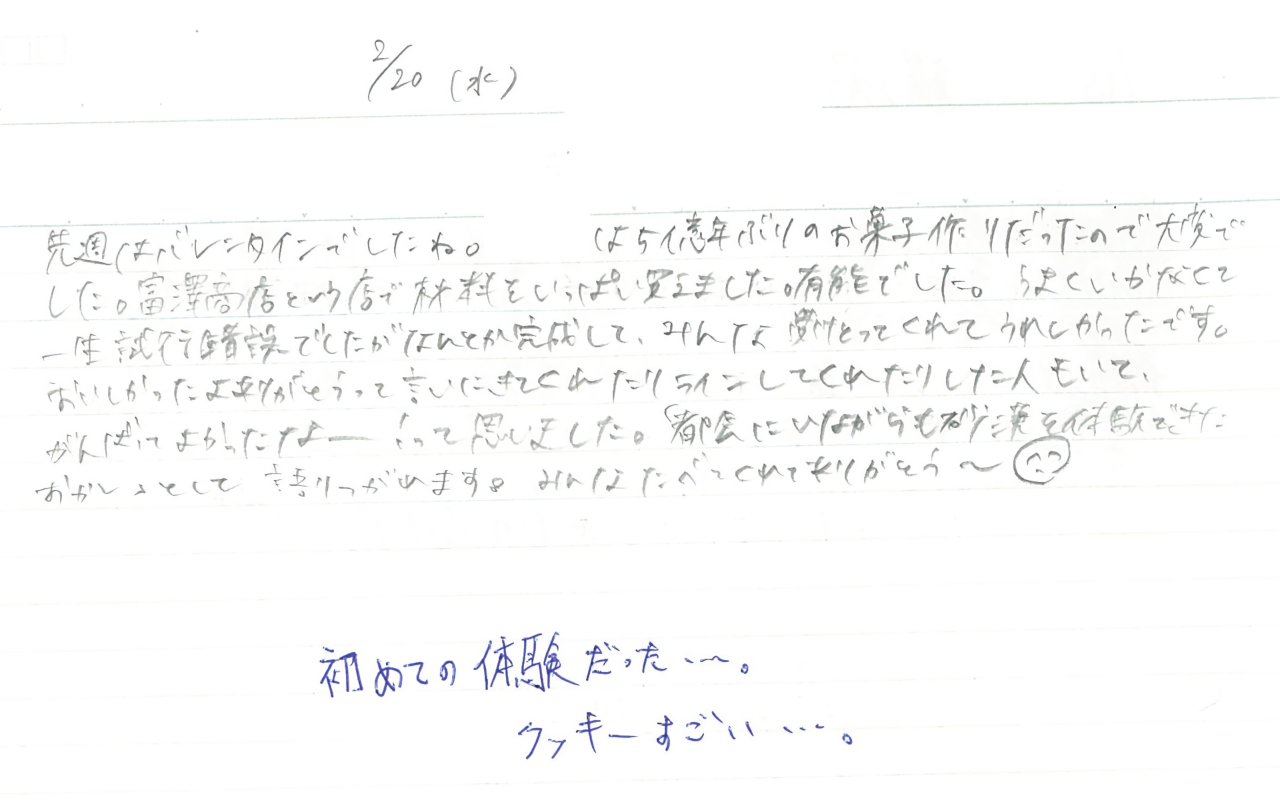 2/20 (水)
先週はバレンタインでしたね。 は5億年ぶりのお菓子作りだったので大変で
した。富澤商店という店で材料をいっぱい買えました。有能でした。うまくいかなくて
一生試行錯誤でしたがなんとか完成して、みんな受けとってくれてうれしかったです。
おいしかったよありがとうって言いにきてくれたりラインしてくれたりした人もいて、
がんばってよかったなーって思いました。都会にいながらも砂漠を体験できた
おかしとして語りつがれます。みんなたべてくれてありがとう〜
初めての体験だった…。
クッキーすごい…。